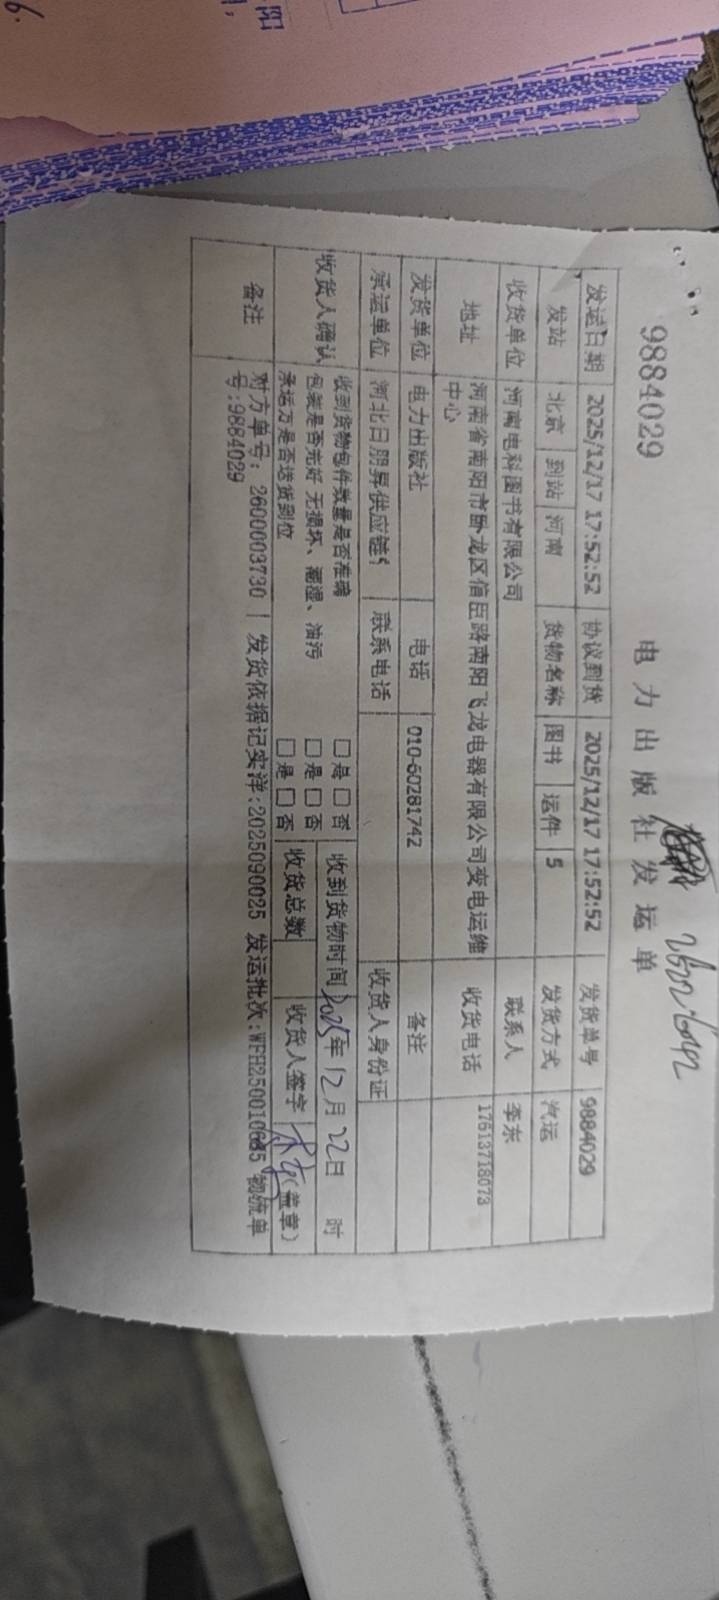 9884029
电力出版社发运单
发运日期 2025/12/17 17:52:52 协议到货 2025/12/17 17:52:52 发货单号 9884029
发站 北京 到站 河南 货物名称 图书 运件 5 发货方式 汽运
收货单位 河南电科图书有限公司 联系人 李东
地址 河南省南阳市卧龙区信臣路南阳飞龙电器有限公司变电运维中心 收货电话 17613718073
发货单位 电力出版社 电话 010-60281742 备注
承运单位 河北日朋昇供应链 联系电话 收货人身份证
收货人确认 收到货物包件数量是否准确 □是 □否 收到货物时间 2025年12月22日 时
包装是否完好 无损坏、潮湿、油污 □是 □否
承运方是否送货到位 □是 □否 收货总数 收货人签字 (盖章)
备注 对方单号: 2600003730 | 发货依据记实洋:2025090025 发运批次:WFH250010685 物流单
号:9884029